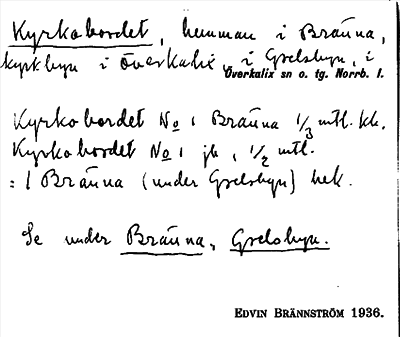 Kyrkobordet, hemman i Bräuna,
kyrkbyn i Överkalix, i Grelsbyn, i
Överkalix sn o. tg. Norrb. l.
Kyrkobordet No 1 Bräuna 1/3 mtl. kh.
Kyrkobordet No 1 jb, 1/2 mtl.
= 1 Bräuna (under Grelsbyn) hek.
Se under Bräuna, Grelsbyn.
EDVIN BRÄNNSTRÖM 1936.